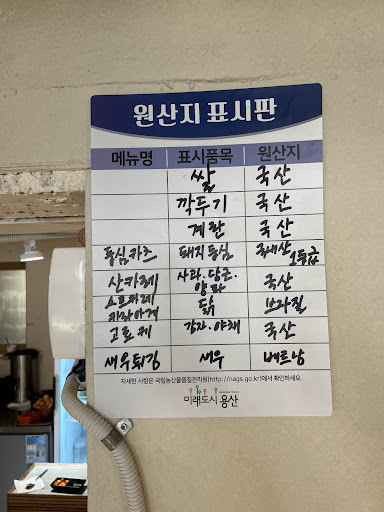 원산지 표시판
메뉴명 표시품목 원산지
쌀 국산
깍두기 국산
계란 국산
등심카츠 돼지등심 국내산 1등급
산카레 사과.당근. 양파 국산
스프카레 카라아게 닭 브라질
고로케 감자.야채 국산
새우튀김 새우 베트남
자세한 사항은 국립농산물품질관리원(http://naqs.go.kr)에서 확인하세요.
미래도시 용산